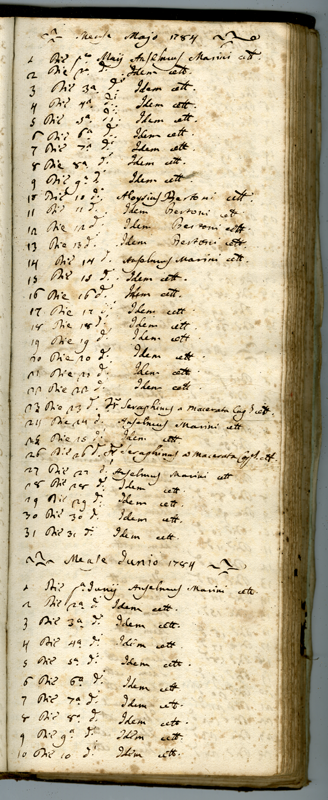 Mense Majo 1784
1 Die p.ma Maij Anselmus Marini cett.
2 Die 2a d.i Idem cett.
3 Die 3a d.i Idem cett.
4 Die 4a d.i Idem cett.
5 Die 5a d.i Idem cett.
6 Die 6a d.i Idem cett.
7 Die 7a d.i Idem cett.
8 Die 8a d.i Idem cett.
9 Die 9a d.i Idem cett.
10 Die 10 d.i Aloysius Bertoni cett.
11 Die 11 d.i Idem Bertoni cett.
12 Die 12 d.i Idem Bertoni cett.
13 Die 13 d.i Idem Bertoni cett.
14 Die 14 d. Anselmus Marini cett.
15 Die 15 d. Idem cett.
16 Die 16 d. Idem cett.
17 Die 17 d. Idem cett.
18 Die 18 d. Idem cett.
19 Die 19 d. Idem cett.
20 Die 20 d. Idem cett.
21 Die 21 d. Idem cett.
22 Die 22 d. Idem cett.
23 Die 23 d. Fr Seraphinus a Macerata Cap. cett.
24 Die 24 d. Anselmus Marini cett.
25 Die 25 d. Idem cett.
26 Die 26 d. Fr Seraphinus a Macerata Cap. cett.
27 Die 27 d. Anselmus Marini cett.
28 Die 28 d. Idem cett.
29 Die 29 d. Idem cett.
30 Die 30 d. Idem cett.
31 Die 31 d. Idem cett.
Mense Junio 1784
1 Die p.a Junij Anselmus Marini cett.
2 Die 2a d. Idem cett.
3 Die 3a d. Idem cett.
4 Die 4a d. Idem cett.
5 Die 5a d. Idem cett.
6 Die 6a d. Idem cett.
7 Die 7a d. Idem cett.
8 Die 8a d. Idem cett.
9 Die 9a d. Idem cett.
10 Die 10 d. Idem cett.